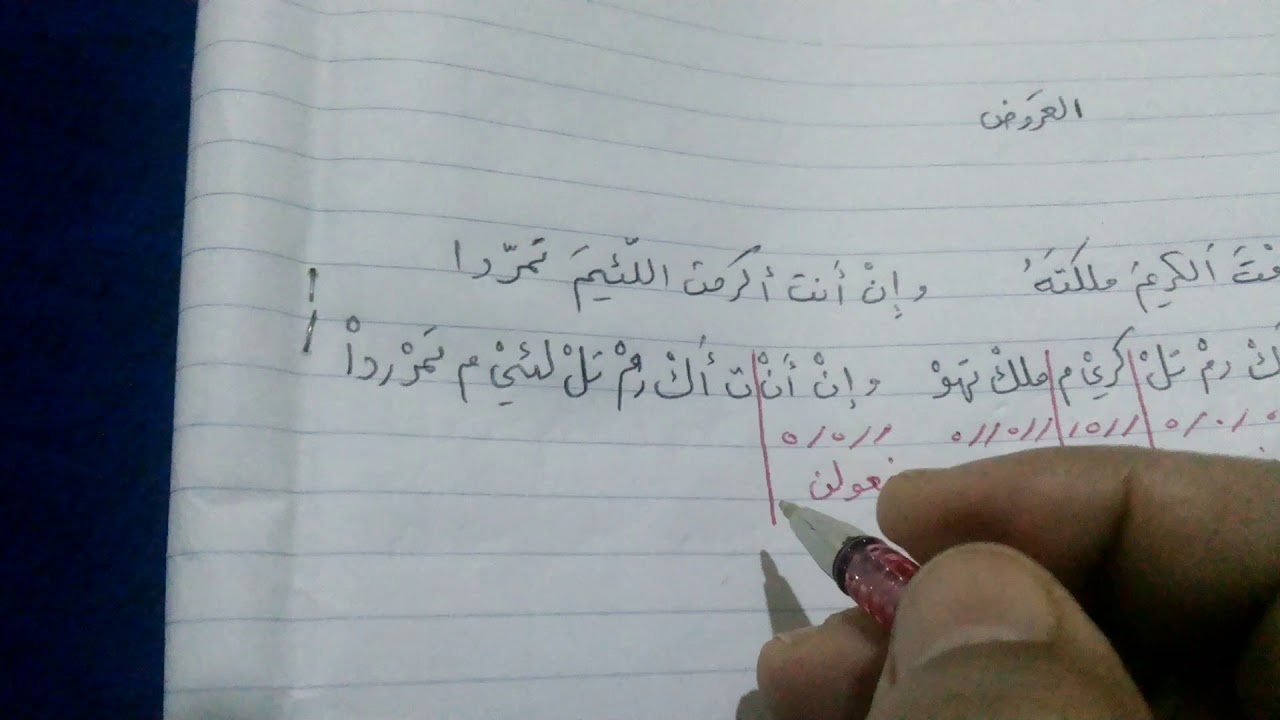 العَرَوض
الكَرِيمَ ملكتَهُ وإِنْ أَنت أكرمتَ اللّئِيمَ تَمرّدا
رمْ تَلْ كَرِيْ م ملكْ تهوْ وإنْ أَنْ ت أَكْ رمْ تَلْ لئيْ م تَمرْردا
//٥/٥ //٥//٥ //٥/ ٥/٥/
فعولن